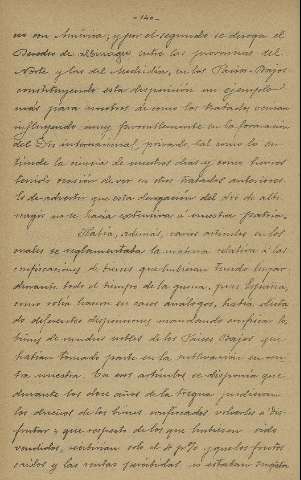 -140-
no con América; y por el segundo se deroga el
Derecho de Albinagio entre las provincias del
Norte y las del Mediodia, en los Países-Bajos
constituyendo esta disposición un ejemplo
más para nosotros de como los tratados venian
influyendo muy favorablemente en la formación
del Dro internacional, privado, tal como lo en-
tiende la ciencia de nuestros dias y como hemos
tenido ocasión de ver en otros tratados anteriores.
Es de advertir que esta derogación del dro de albi-
nagio no se hacía extensiva á nuestra patria.
Había, además, varios artículos en los
cuales se reglamentaba la materia relativa á las
confiscaciones de bienes que hubieran tenido lugar
durante todo el tiempo de la guerra, pues España,
como solía hacer en casos análogos, había dicta
do diferentes disposiciones mandando confiscar los
bienes de muchos nobles de los Países Bajos que
habian tomado parte en la sublevación en con
tra nuestra. En esos artículos se disponía que
durante los doce años de la tregua pudieran
los dueños de los bienes confiscados volverlos á dis-
frutar y que respecto de los que hubiesen sido
vendidos, recibirían solo el p% y que los frutos
caidos y las rentas percibidas no estaban sujetas